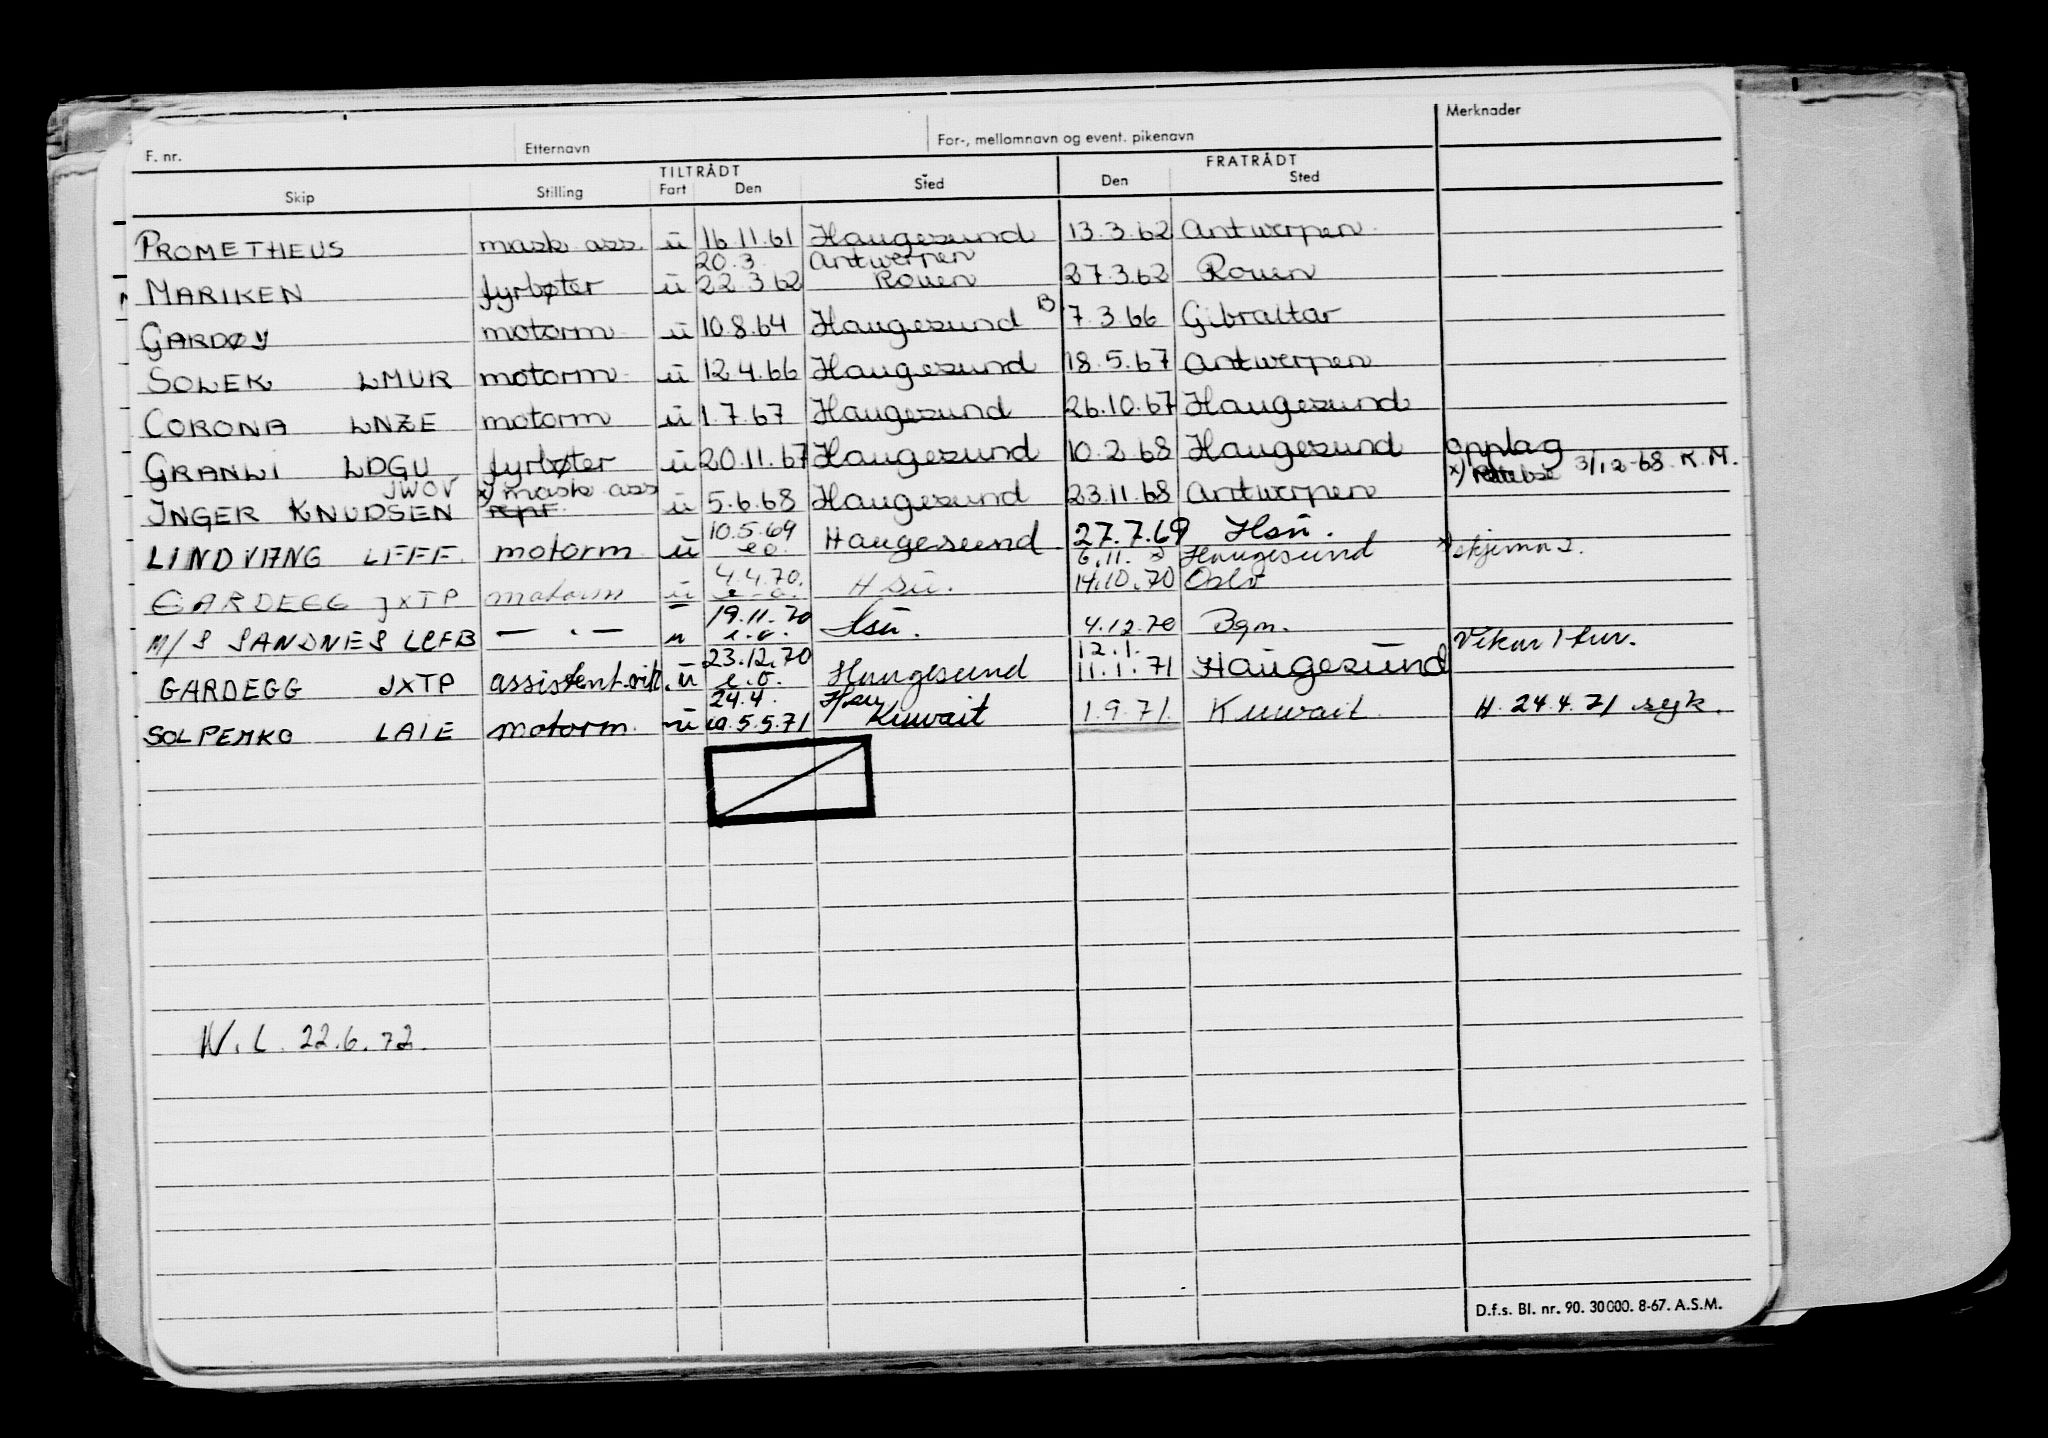 F. nr. Etternavn For-, mellomnavn og event. pikenavn Merknader
TILTRÅDT FRATRÅDT
Skip Stilling Fart Den Sted Den Sted
PROMETHEUS mask. ass. ü 16.11.61 Haugesund 13.3.62 Antwerpen
20.3. Antwerpen
MARIKEN fyrbøter ü 22.3.62 Rouen 27.3.62 Rouen
GARDØY motorm ü 10.8.64 Haugesund B 7.3.66 Gibraltar
SOLEK LMUR motorm. ü 12.4.66 Haugesund 18.5.67 Antwerpen
CORONA LNZE motorm ü 1.7.67 Haugesund 26.10.67 Haugesund
GRANLI LDGU fyrbøter ü 20.11.67 Haugesund 10.2.68 Haugesund opplag
JWOV x) mask. ass x) 3/12-68. K.M.
INGER KNUDSEN ü 5.6.68 Haugesund 23.11.68 Antwerpen
10.5.69
LINDVANG LFFF. motorm ü e.o. Haugesund 27.7.69 Hsü.
4.4.70. 6.11. x) Haugesund x) skjema 2.
GARDEGG JXTP motorm ü e.o. Hsü. 14.10.70 Oslo
19.11.70
M/S SANDNES LCFB — . — ü e.o. Hsü. 4.12.70 Bgn.
23.12.70 12.1. Vikar 1 tur.
GARDEGG JXTP assistent.vik. ü e.o. Haugesund 11.1.71 Haugesund
24.4. Hsu
SOLPEMKO LAIE motorm. ü 5.5.71 Kuwait 1.9.71. Kuwait H. 24.4.71 syk.
N.L. 22.6.72.
D.f.s. Bl. nr. 90. 30000. 8-67. A.S.M.